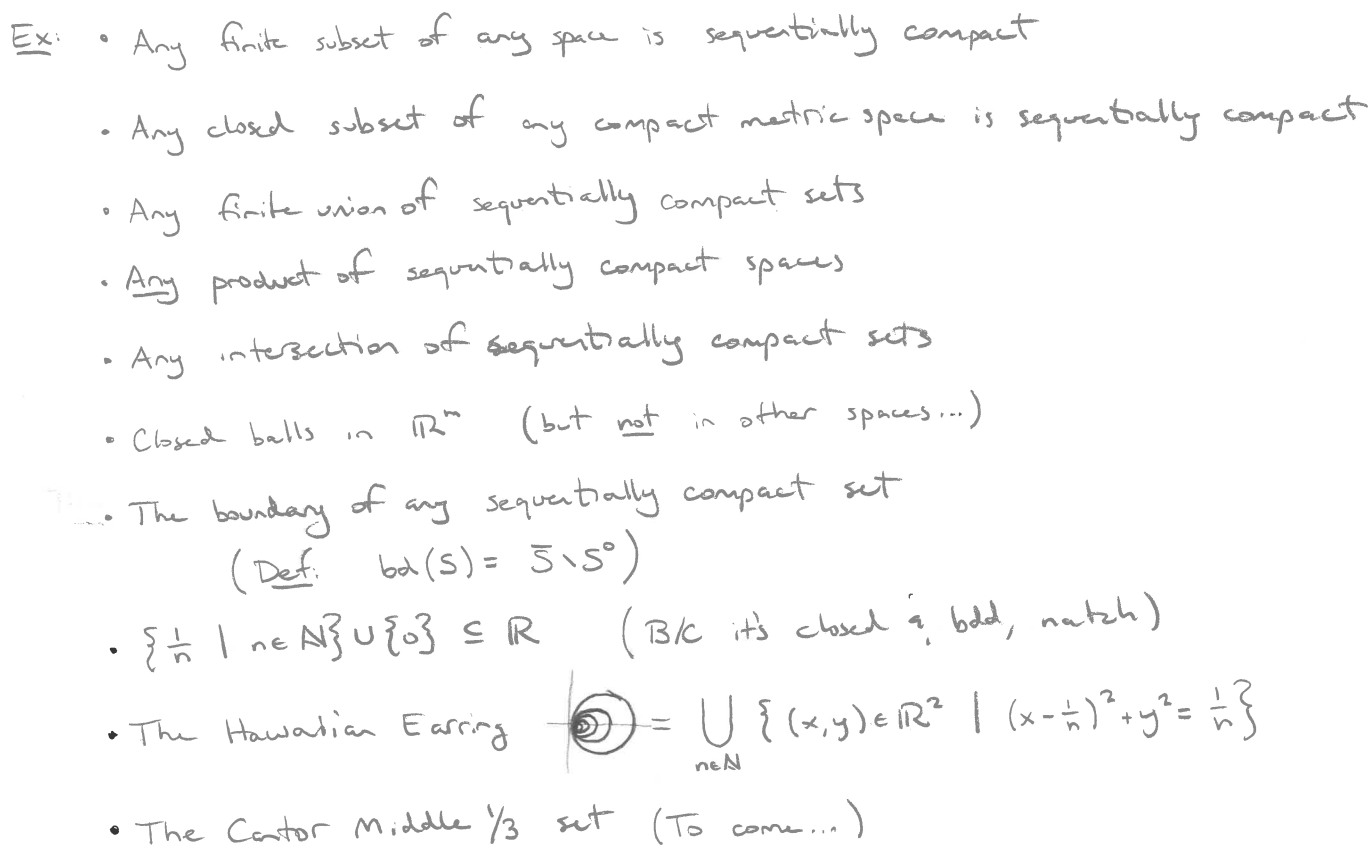 Ex: • Any finite subset of any space is sequentially compact
• Any closed subset of any compact metric space is sequentially compact
• Any finite union of sequentially compact sets
• Any product of sequentially compact spaces
• Any intersection of sequentially compact sets
• Closed balls in ℝᵐ (but not in other spaces...)
• The boundary of any sequentially compact set
(Def: bd(S) = S̄ \ S°)
• {1/n | n∈ℕ}∪{0} ⊆ ℝ (B/C it's closed & bdd, natch)
• The Hawaiian Earring = ⋃ n∈ℕ {(x,y)∈ℝ² | (x-1/n)²+y²=1/n}
• The Cantor Middle 1/3 set (To come...)